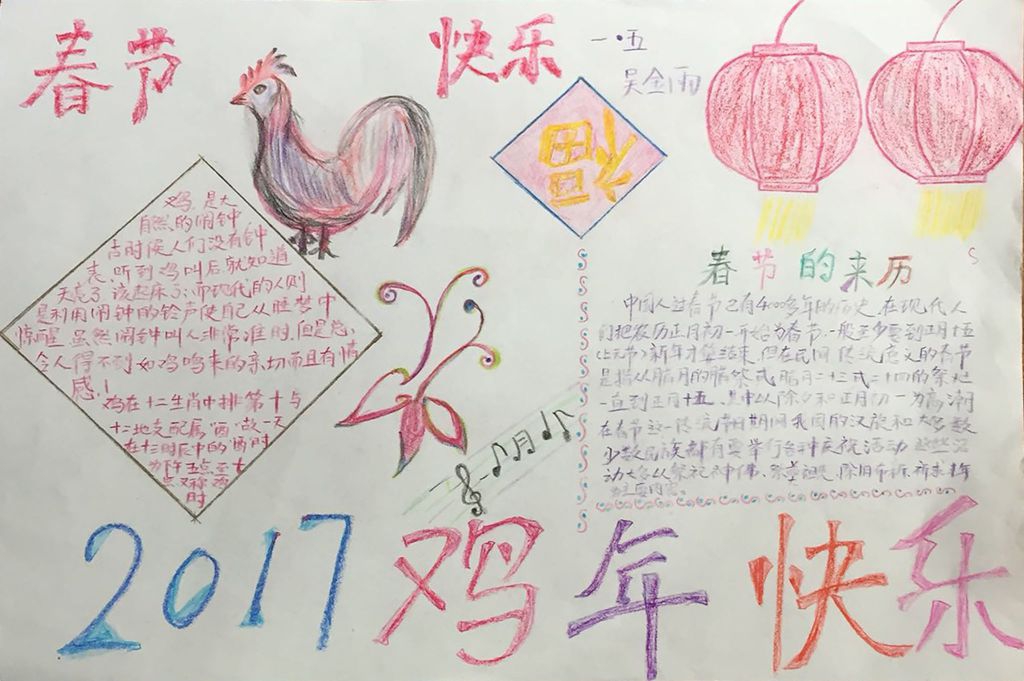 春节
快乐
一·五
吴金雨
福
鸡,是大
自然的闹钟
古时候人们没有钟
表,听到鸡叫后就知道
天亮了,该起床了,而现代的人则
是利用闹钟的铃声使自己从睡梦中
惊醒,虽然闹钟叫人非常准时,但是总
令人得不到如鸡鸣来的亲切而且有情
感!
鸡在十二生肖中排第十与
十二地支配属"酉"故一天
在十二时辰中的"酉时"
为下午五点至七
点又称
时
春节的来历
中国人过春节已有4000多年的历史,在现代人
们把农历正月初一开始为春节,一般至少要到正月十五
(上元节)新年才算结束,但在民间传统意义的春节
是指从腊月的腊祭或腊月二十三或二十四的祭灶
一直到正月十五,其中以除夕和正月初一为高潮
在春节这一传统节日期间我国的汉族和大多数
少数民族都有要举行各种庆祝活动,这些活
动大多以祭祀神佛、祭奠祖先、除旧布新、祈求丰年
为主要内容。
2017鸡年快乐